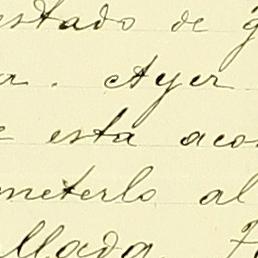 estado de g
r. Ayer
e esta aco
meterlo al
llada. F